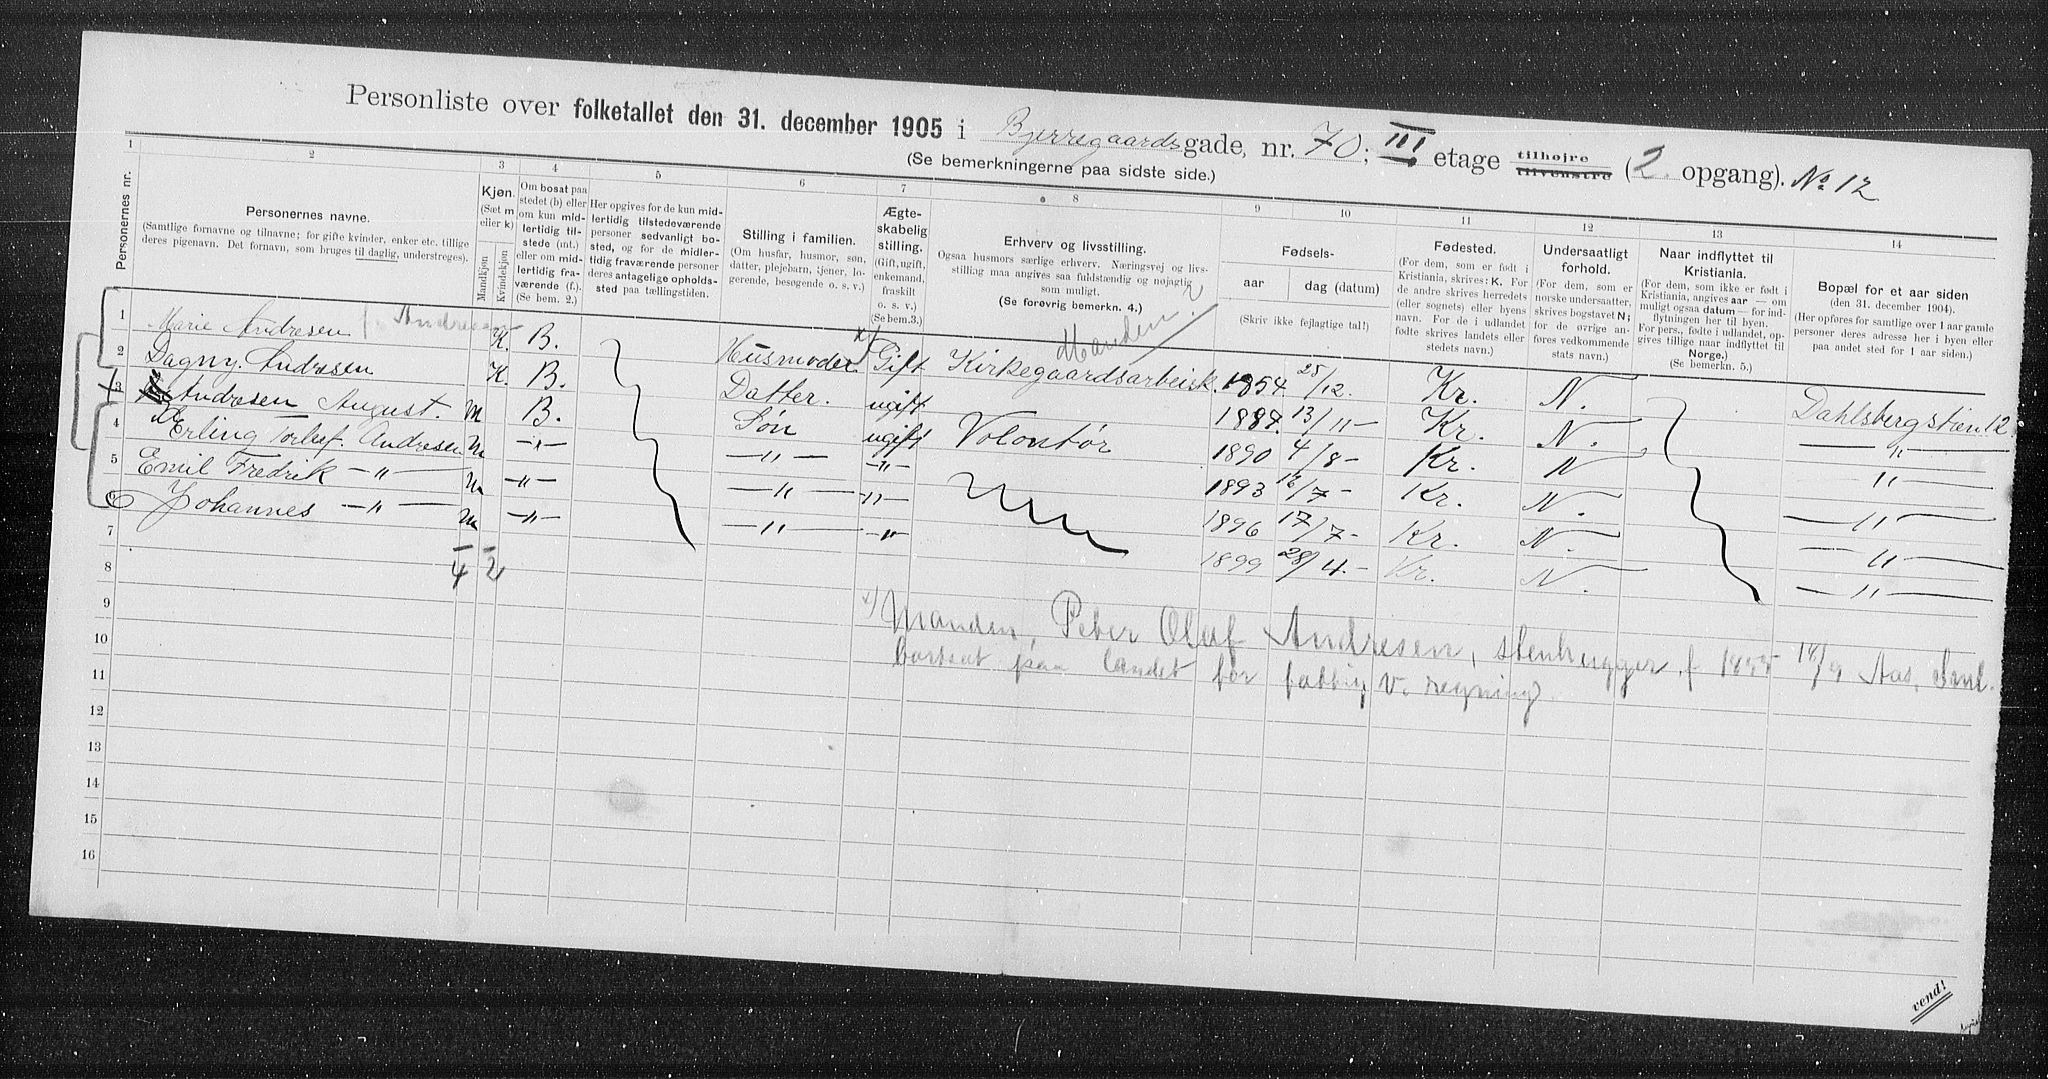 Personliste over folketallet den 31. december 1905 i Bjerregaardsgade, nr. 70; III etage tilhøjre tilvenstre (2 opgang). No 12
(Se bemerkningerne paa sidste side.)
1 2 3 4 5 6 7 8 9 10 11 12 13 14
Personernes nr.
Personernes navne.
(Samtlige fornavne og tilnavne; for gifte kvinder, enker etc. tillige deres pigenavn. Det fornavn, som bruges til daglig, understreges).
Kjøn.
(Sæt m eller k)
Mandkjøn
Kvindekjøn
Om bosat paa stedet (b) eller om kun midlertidig tilstede (mt.) eller om midlertidig fraværende (f.). (Se bem. 2.)
Her opgives for de kun midlertidig tilstedeværende personer sedvanligt bosted, og for de midlertidig fraværende personer deres antagelige opholdssted paa tællingstiden.
Stilling i familien.
(Om husfar, husmor, søn, datter, plejebarn, tjener, logerende, besøgende o. s. v.)
Ægteskabelig stilling.
(Gift, ugift, enkemand, fraskilt o. s. v.)
(Se bem. 3.)
Erhverv og livsstilling.
Ogsaa husmors særlige erhverv. Næringsvej og livsstilling maa angives saa fuldstændig og nøjagtig som muligt.
(Se forøvrig bemerkn. 4.)
Fødsels-
aar
dag (datum)
(Skriv ikke fejlagtige tal!)
Fødested.
(For dem, som er født i Kristiania, skrives: K. For de andre skrives herredets (eller sognets) eller byens navn. For de i udlandet fødte skrives landets eller stedets navn.)
Undersaatligt forhold.
(For dem, som er norske undersaatter, skrives bogstavet N; for de øvrige anføres vedkommende stats navn.)
Naar indflyttet til Kristiania.
(For dem, som ikke er født i Kristiania, angives aar — om muligt ogsaa datum — for indflytningen her til byen. For pers., fødte i udlandet, opgives tillige naar indflyttet til Norge.)
(Se bemerkn. 5.)
Bopæl for et aar siden
(den 31. december 1904).
(Her opføres for samtlige over 1 aar gamle personer deres adresse her i byen eller paa andet sted for 1 aar siden.)
1 Marie Andresen f. Andresen K. B. Husmoder. x) Gift Kirkegaardsarbeisk. Manden. 1854. 25/12. Kr. N. Dahlsbergstien 12
2 Dagny. Andresen K. B. Datter. ugift 1887. 13/11 — Kr. N. — " —
3 Andresen August. M B. Søn ugift Volontør 1890 4/8 — Kr. N — " —
4 Erling Torleif. Andresen M — " — — " — — " — 1893 16/7 — Kr. N. — " —
5 Emil Fredrik — " — M — " — — " — — " — 1896 17/7 — Kr. N. — " —
6 Johannes — " — M — " — — " — — " — 1899 28/4. — Kr. N. — " —
7
4 2
8
9
x) Manden, Peter Oluf Andresen, stenhugger f 1855 18/9 Aas, Sml.
10
bortsat paa landet for fattig v. regning
11
12
13
14
15
16
vend!